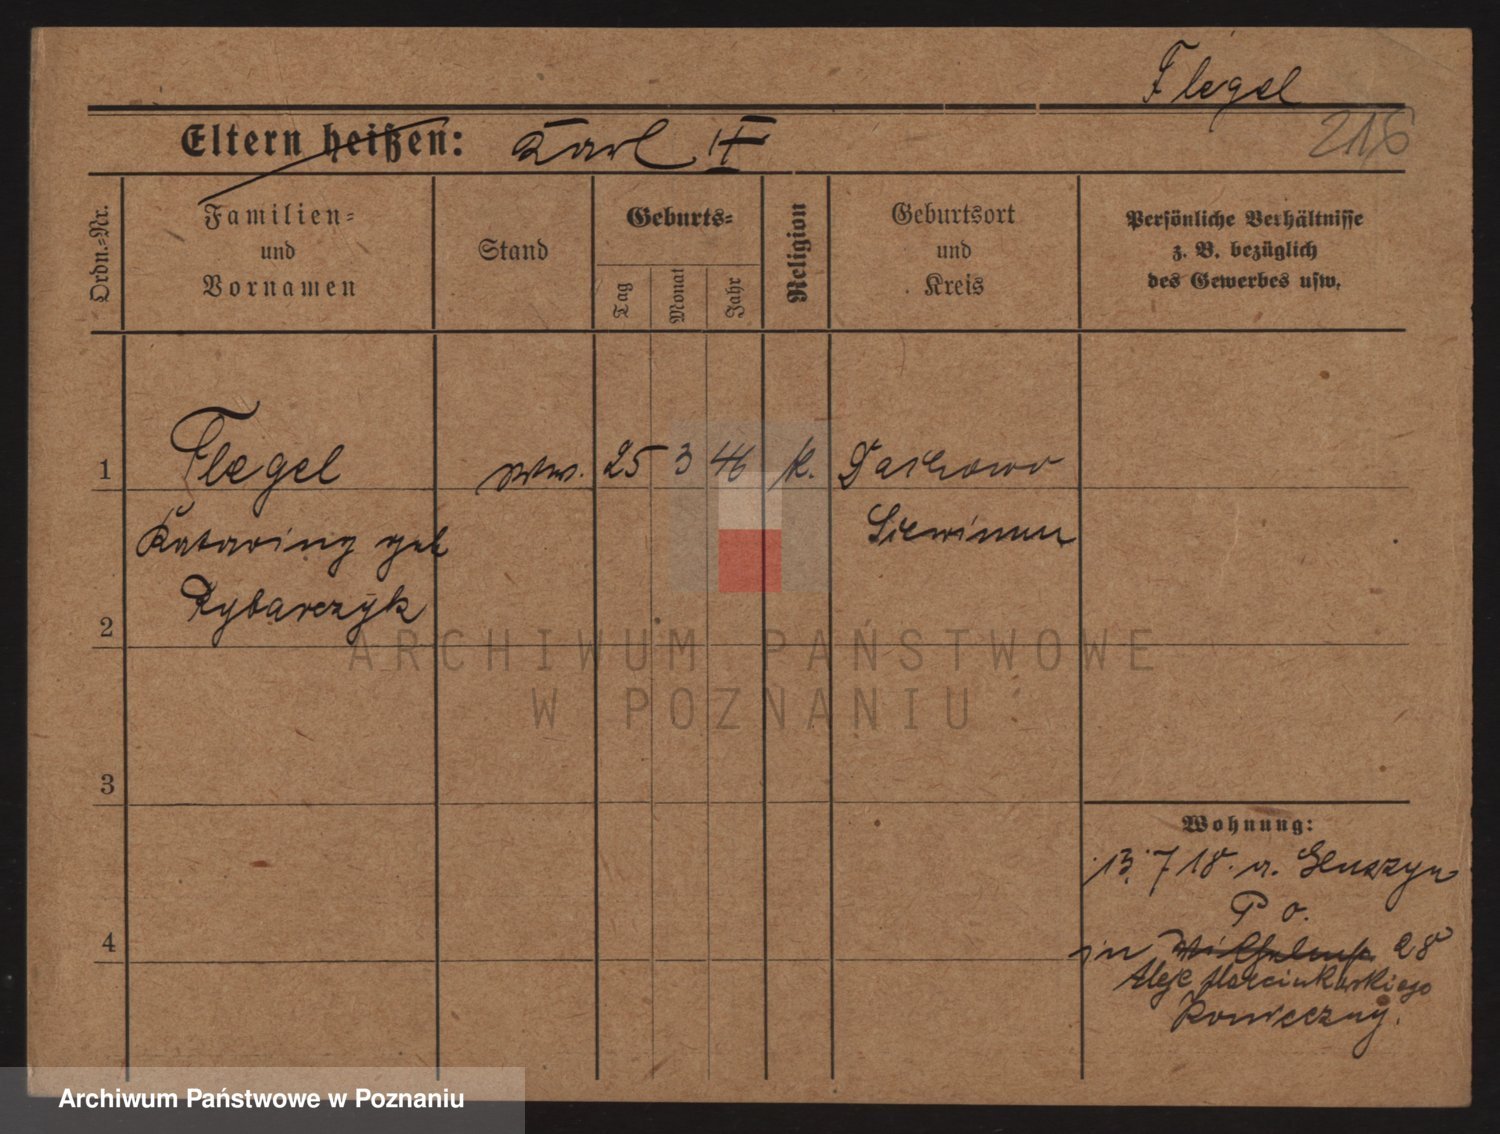 Flegel
216
Eltern heißen: Karl II
Ordn.-Nr.
Familien-
und
Vornamen
Stand
Geburts-
Tag
Monat
Jahr
Religion
Geburtsort
und
Kreis
Persönliche Verhältnisse
z. B. bezüglich
des Gewerbes usw.
1 Flegel Ww. 25 3 46 k. Dachowo
Katarina geb
Rybarczyk
2
3
4
Wohnung:
13. 7 18. a. Gluszyn
P o.
zu Wilhelmstr 28
Aleje Marcinkowskiego
Konieczny.
ARCHIWUM PAŃSTWOWE
W POZNANIU
Archiwum Państwowe w Poznaniu